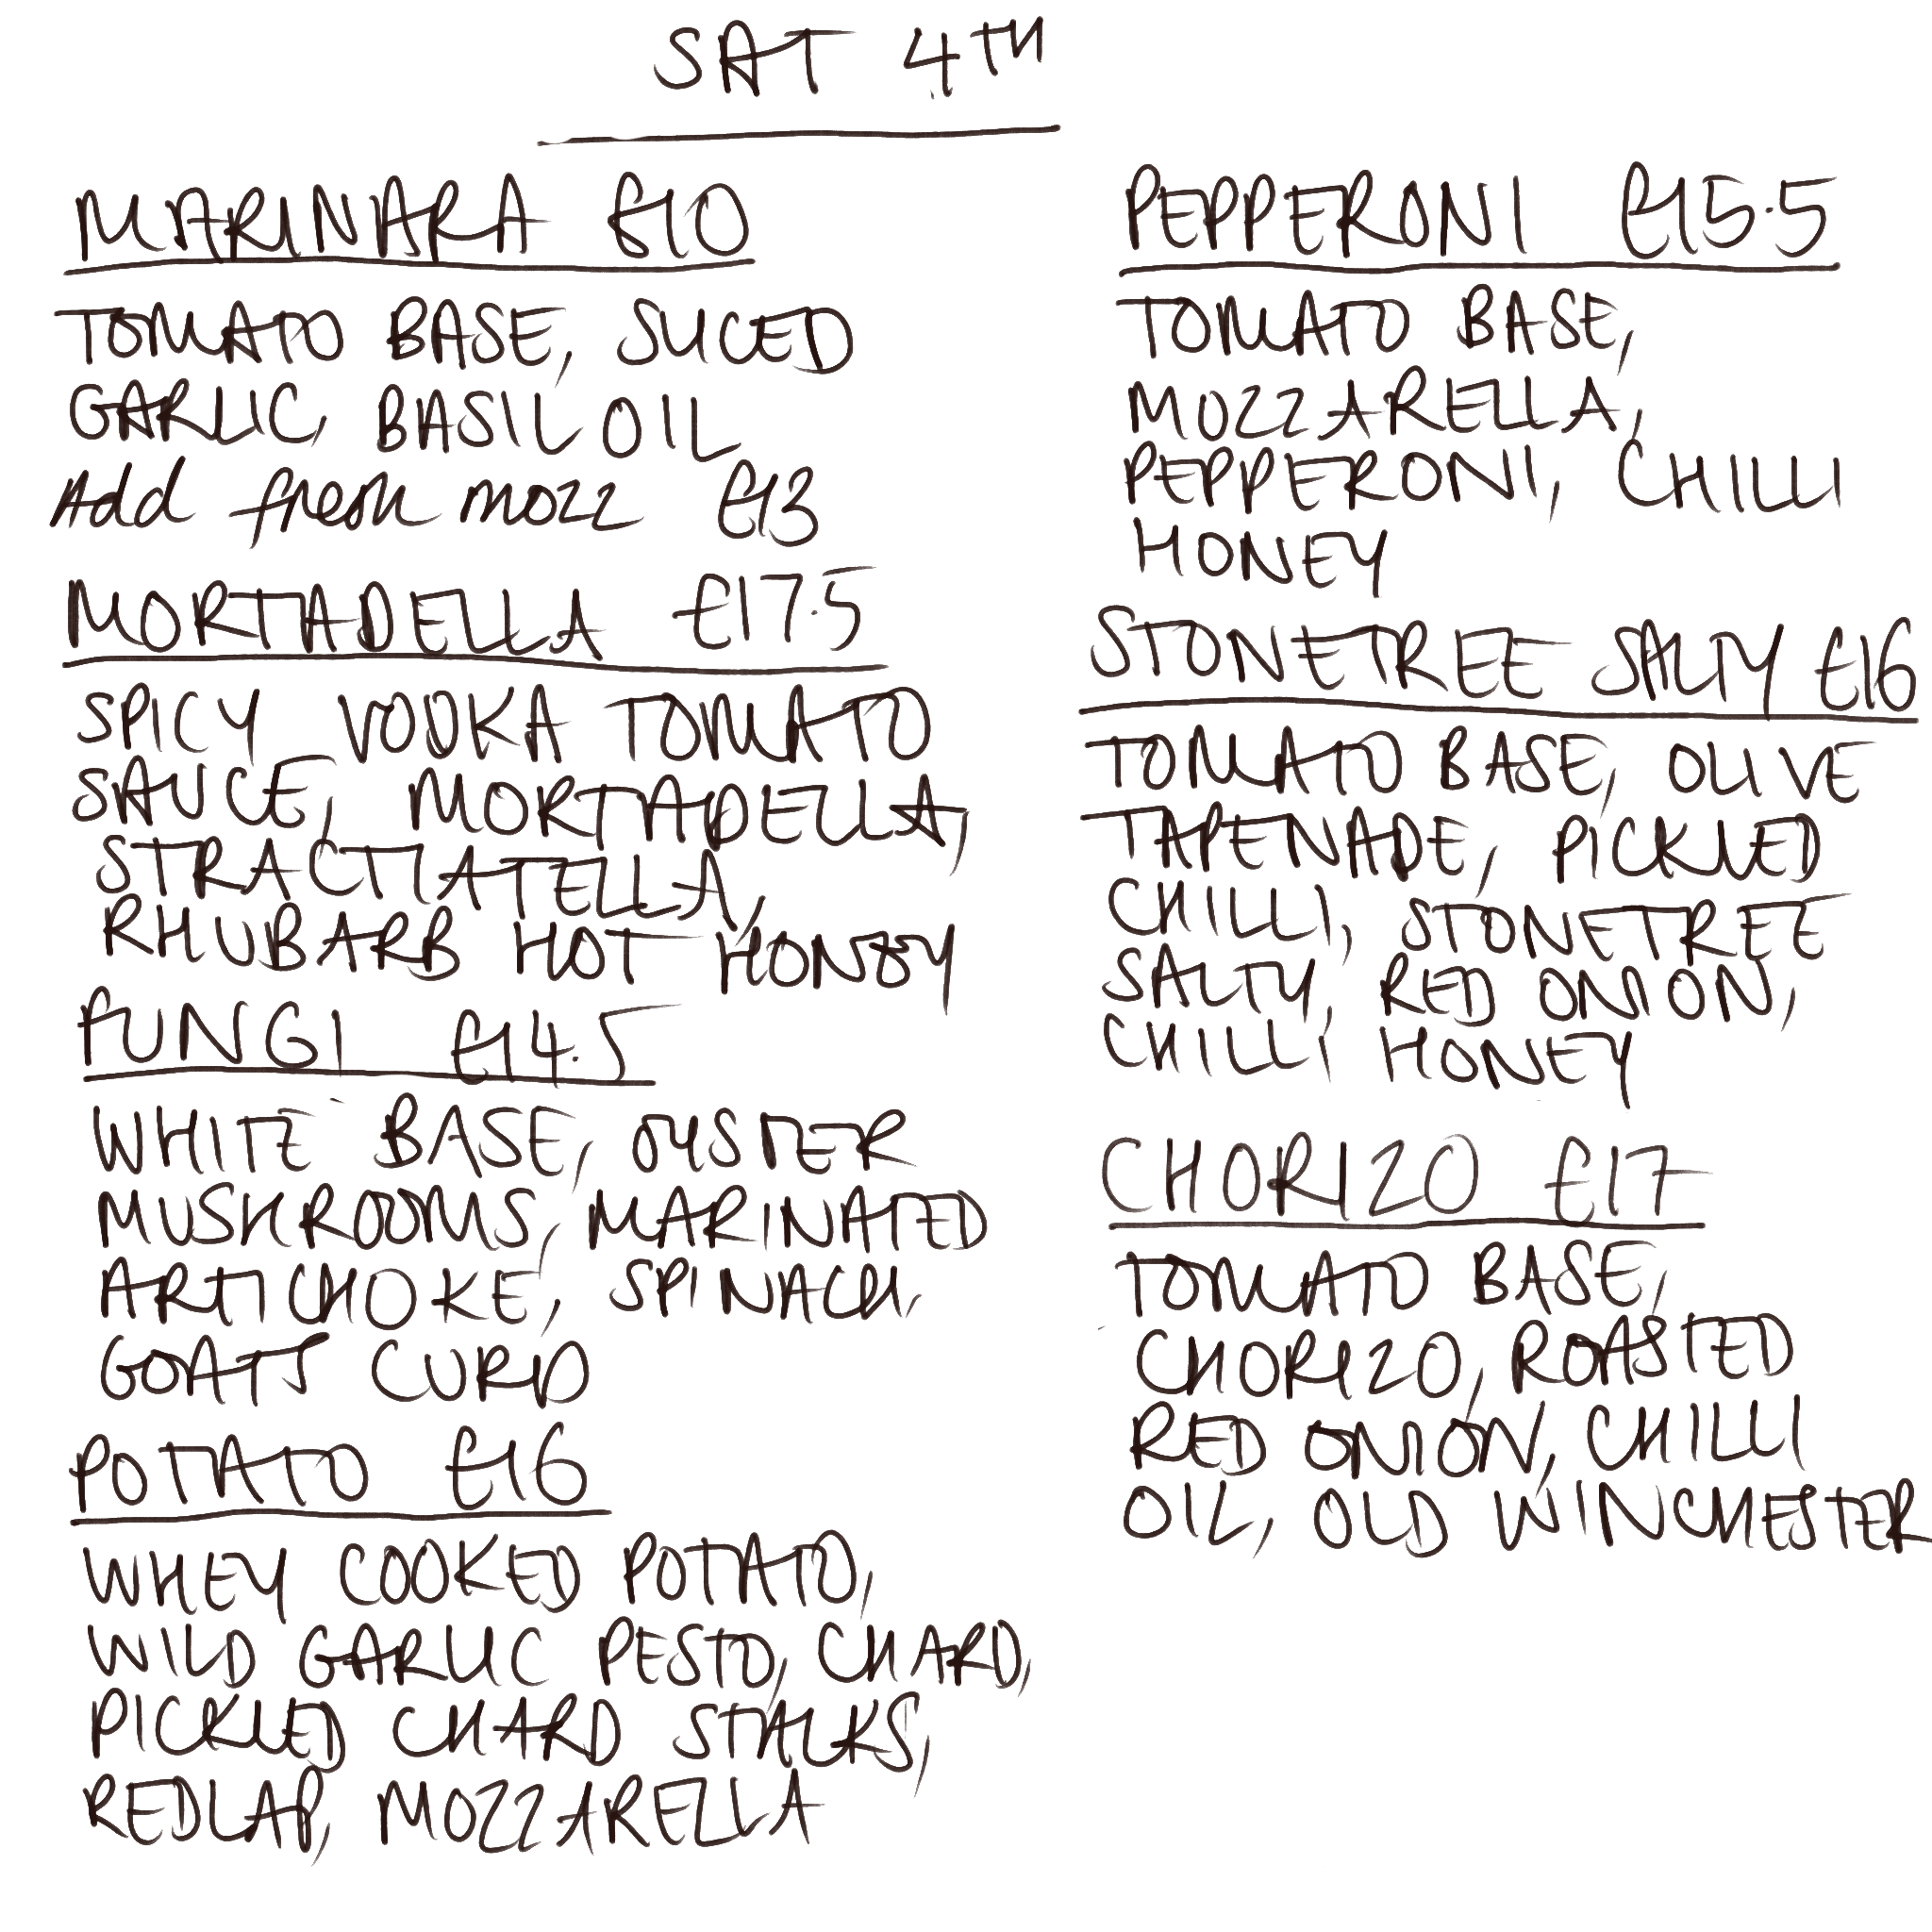 SAT 4TH
MARINARA £10
TOMATO BASE, SLICED
GARLIC, BASIL OIL
Add fresh mozz £13
MORTADELLA £17.5
SPICY VODKA TOMATO
SAUCE, MORTADELLA,
STRACTIATELLA,
RHUBARB HOT HONEY
FUNGI £14.5
WHITE BASE, OYSTER
MUSHROOMS, MARINATED
ARTICHOKE, SPINACH,
GOATS CURD
POTATO £16
WHEY COOKED POTATO,
WILD GARLIC PESTO, CHARD,
PICKLED CHARD STALKS,
REDLAP, MOZZARELLA
PEPPERONI £15.5
TOMATO BASE,
MOZZARELLA,
PEPPERONI, CHILLI
HONEY
STONETREE SALTY £16
TOMATO BASE, OLIVE
TAPENADE, PICKLED
CHILLI, STONETREE
SALTY, RED ONION,
CHILLI HONEY
CHORIZO £17
TOMATO BASE,
CHORIZO, ROASTED
RED ONION, CHILLI
OIL, OLD WINCHESTER